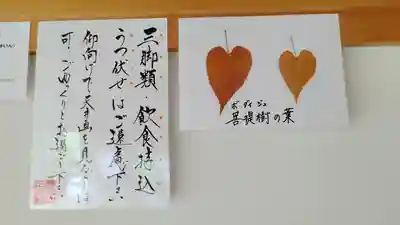 三脚類・飲食持込
うつ伏せはご遠慮下さい
仰向けで天井画を見る
可・ごゆっくりとお過ごし下さい
ボディジュ
菩提樹の葉